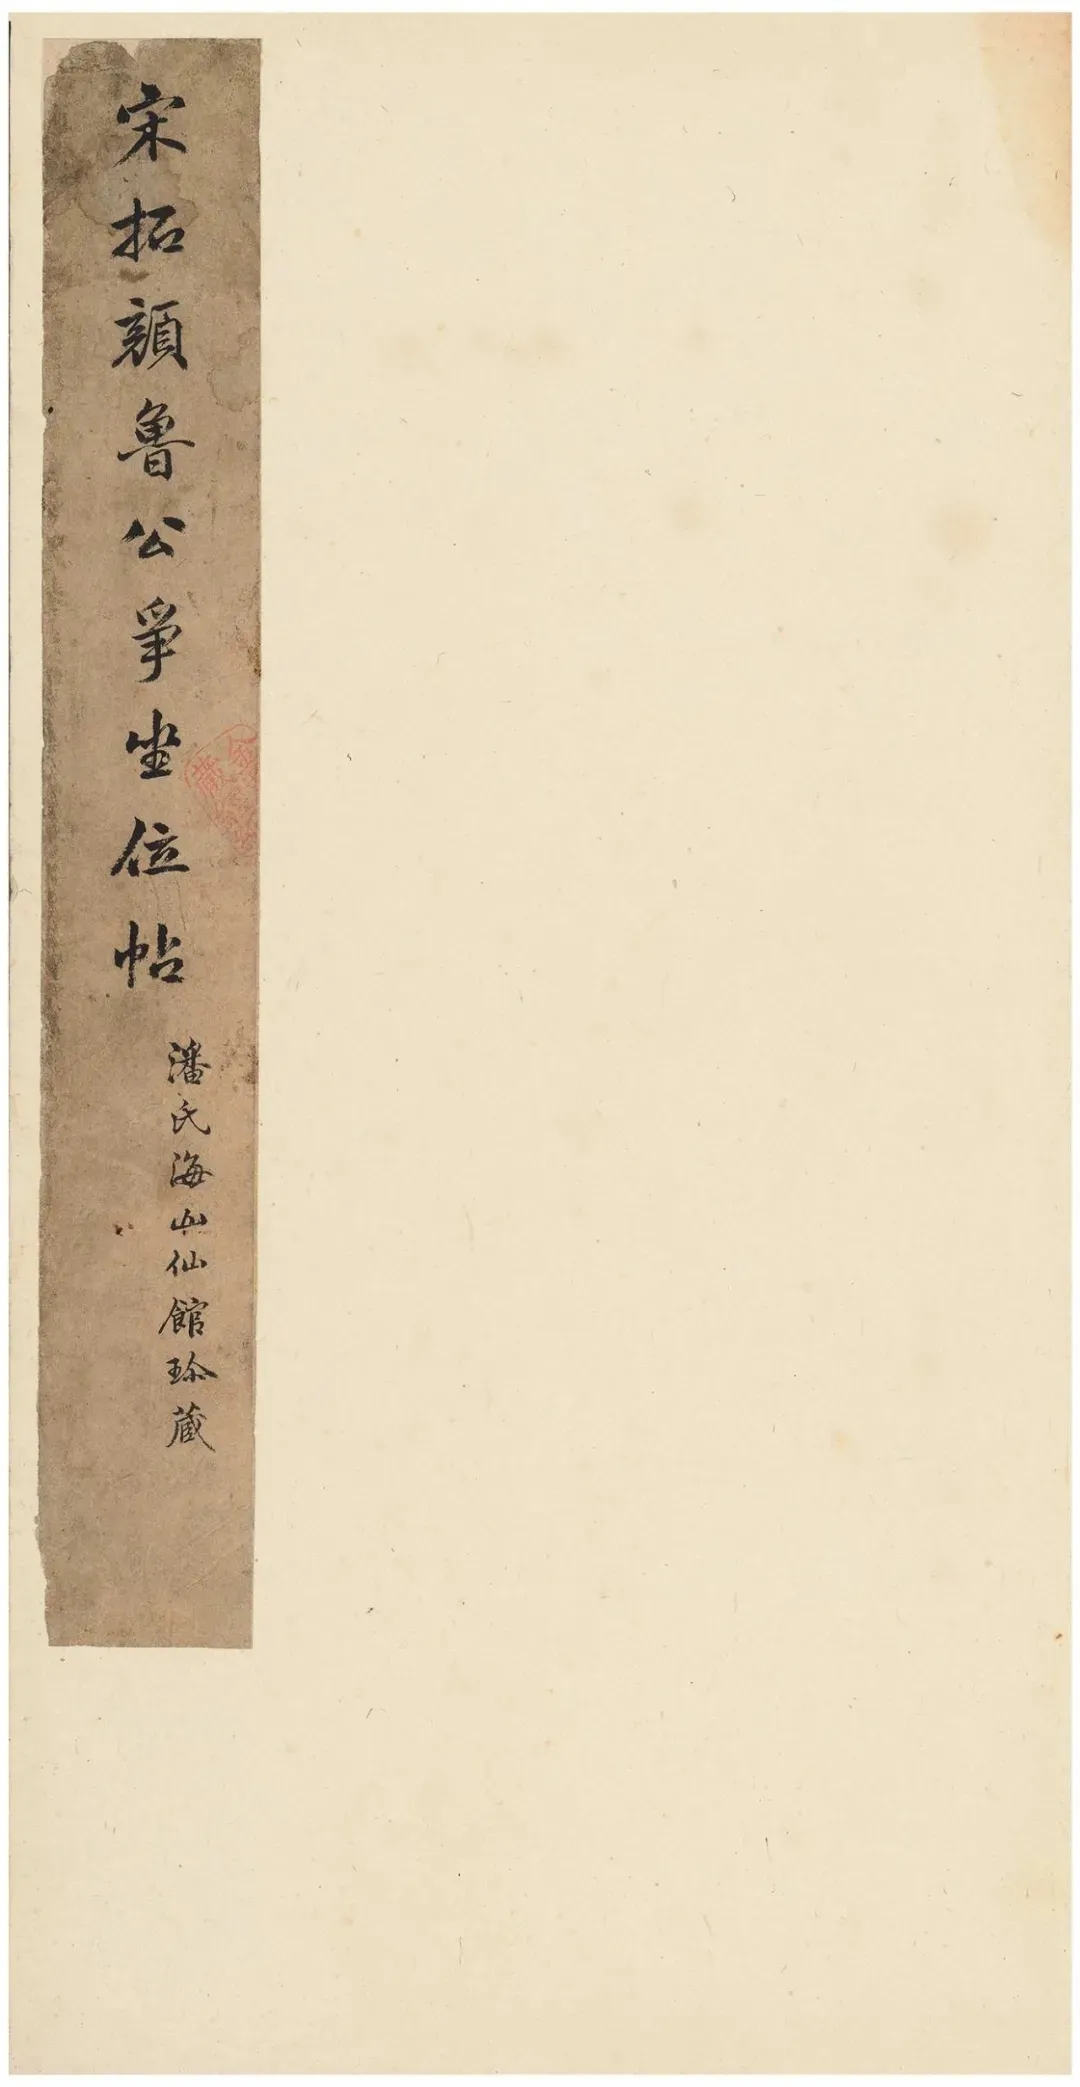 宋拓顔魯公爭坐位帖
潘氏海山仙館珍藏